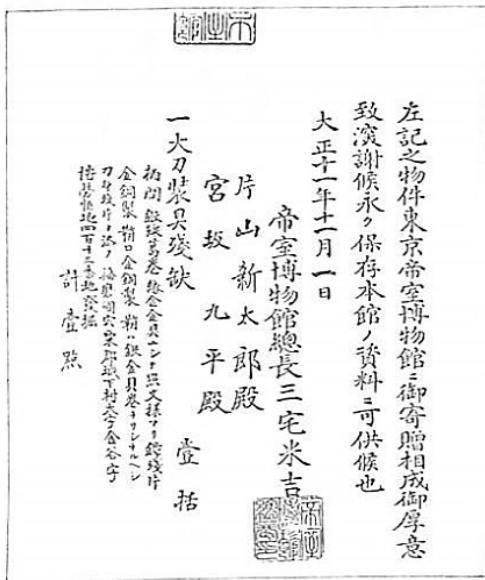 左記之物件東京帝室博物館ニ御寄贈相成御厚意
致深謝候永ク保存本館ノ資料ニ可供候也
大正十一年十一月一日
帝室博物館總長三宅米吉
片山新太郎殿
宮坂九平殿
一大刀装具残缺 壹括
柄間銀線葛巻 鞘口金銅製
金銅製 鞘口金銅製 鞘ハ銀金具巻ナリシナルベシ
刀身残片ヲ添フ 播磨国宍粟郡城下村大字金谷字
四百十三番地発掘
計壹點